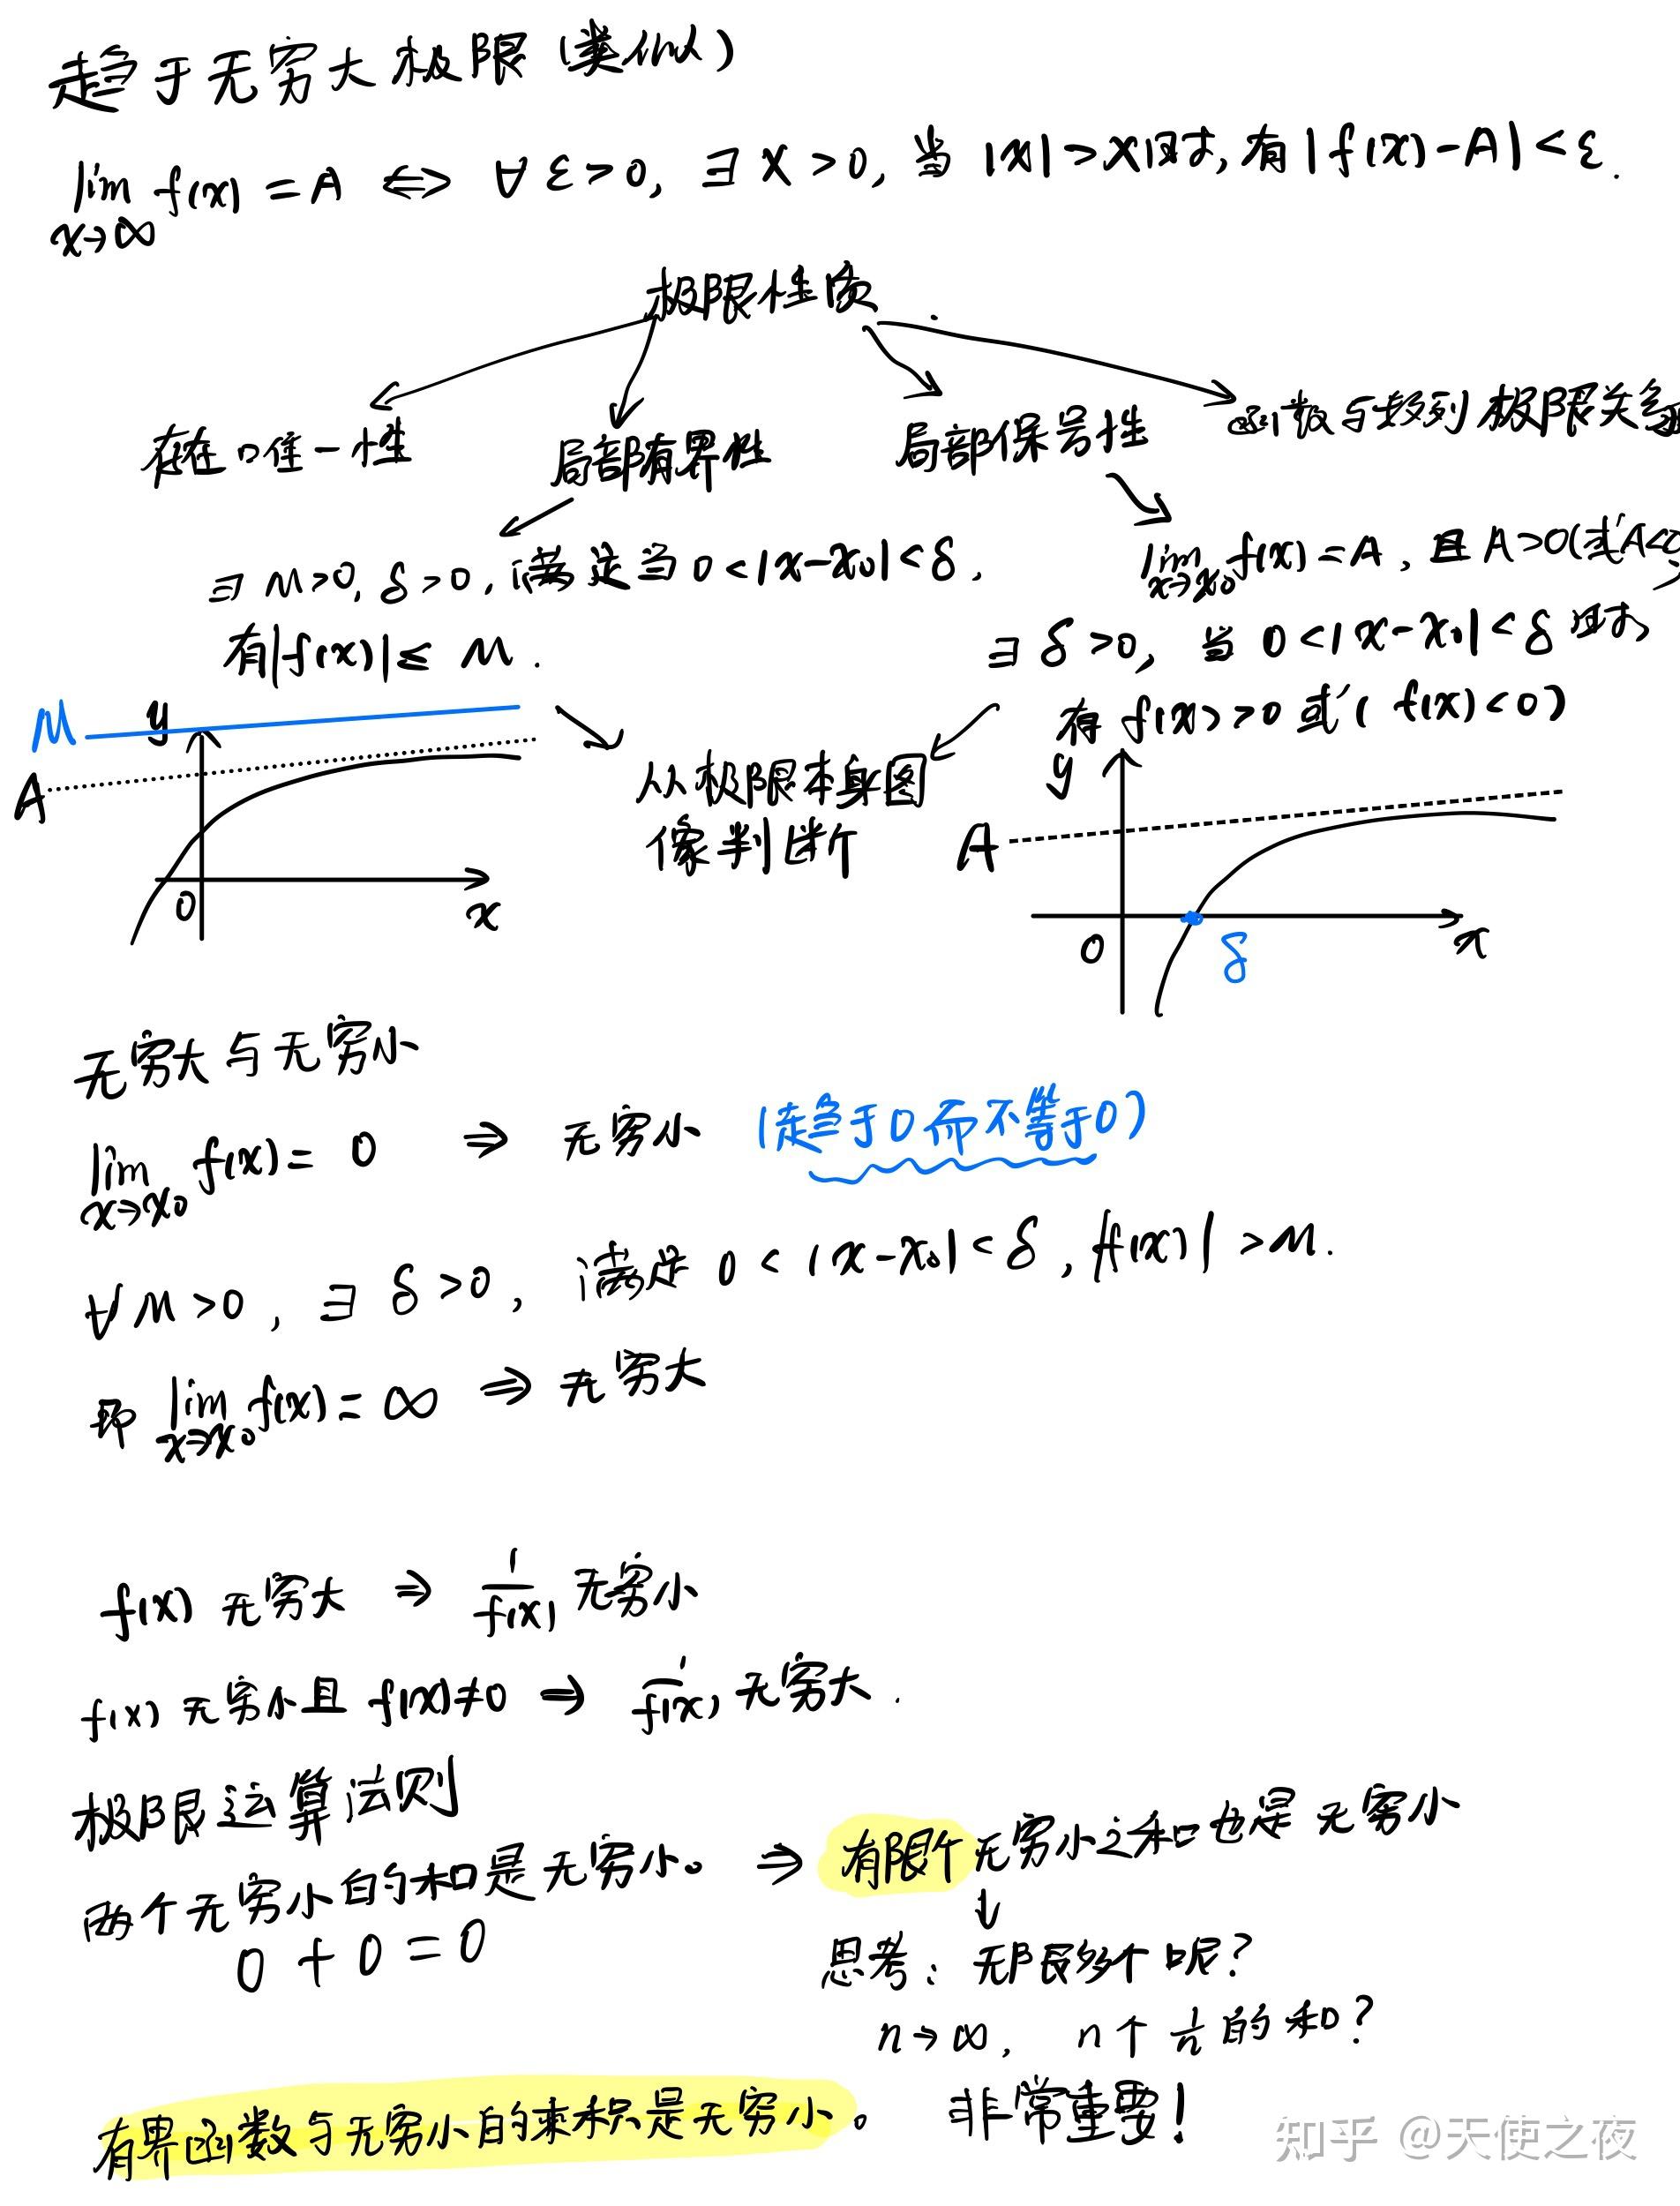 趋于无穷大极限(类似)
lim f(x) = A ⇔ ∀ ε>0, ∃ X>0, 当 |x|>X时, 有|f(x)-A|<ε.
x→∞
极限性质
存在唯一性 局部有界性 局部保号性 函数与数列极限关系
∃ M>0, δ>0, 满足当 0<|x-x₀|<δ,
有|f(x)|≤ M.
lim f(x)=A, 且 A>0(或A<0)
x→x₀
∃ δ>0, 当 0<|x-x₀|<δ 时,
有 f(x)>0 或(f(x)<0)
M y
A
0 x
从极限本身图
像判断
y
A
0 δ x
无穷大与无穷小
lim f(x)= 0 ⇒ 无穷小 (趋于0而不等于0)
x→x₀
∀M>0, ∃ δ>0, 满足 0<|x-x₀|<δ, |f(x)|>M.
即 lim f(x)= ∞ ⇒ 无穷大
x→x₀
f(x) 无穷大 ⇒ 1/f(x) 无穷小
f(x) 无穷小且 f(x)≠0 ⇒ 1/f(x) 无穷大.
极限运算法则
两个无穷小的和是无穷小。 ⇒ 有限个无穷小之和也是无穷小
0 + 0 = 0
↓
思考: 无限多个呢?
n→∞, n个 1/n 的和?
有界函数与无穷小的乘积是无穷小。 非常重要!
知乎 @天使之夜